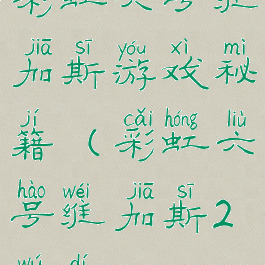 jiā sī yóu xì mì
加斯游戏秘
jí cǎi hóng liù
籍（彩虹六
hào wéi jiā sī
号维加斯2
wú dí